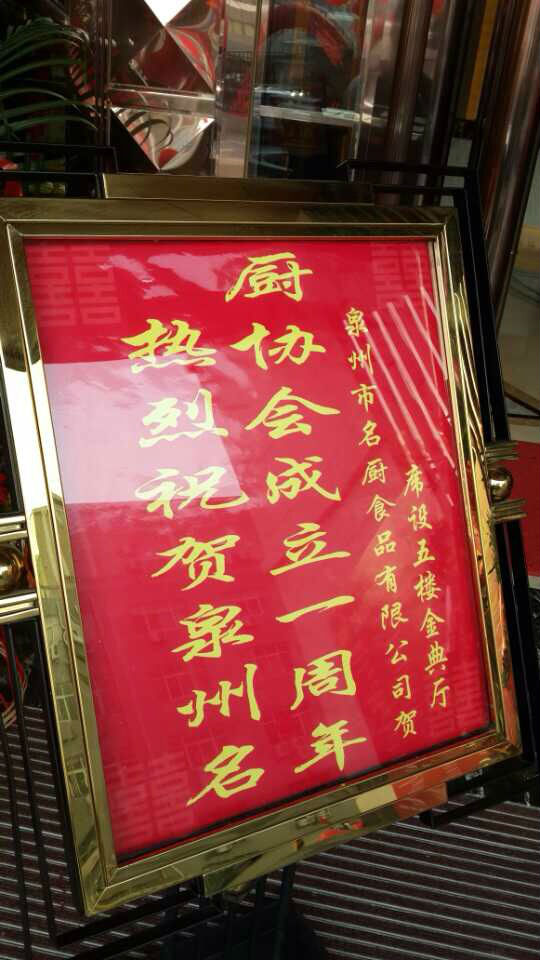 热烈祝贺泉州名
厨协会成立一周年
泉州市名厨食品有限公司贺
席设五楼金典厅